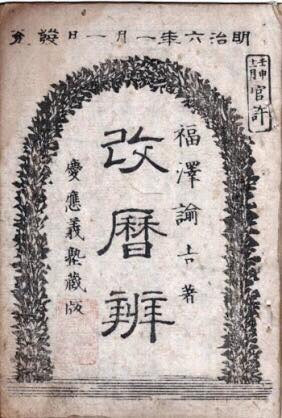 明治六年一月一日發兌
壬申十二月官許
福澤諭吉著
改暦辨
慶應義塾藏版